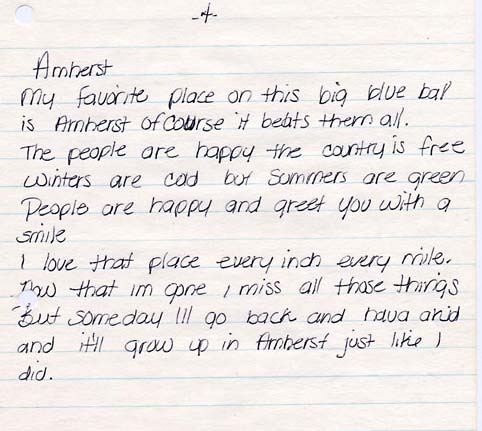 -4-
Amherst
My favorite place on this big blue ball
is Amherst of course it beats them all.
The people are happy the country is free
Winters are cold but Summers are green
People are happy and greet you with a
smile
I love that place every inch every mile.
Now that im gone I miss all those things
But someday I'll go back and hava a kid
and it'll grow up in Amherst just like I
did.